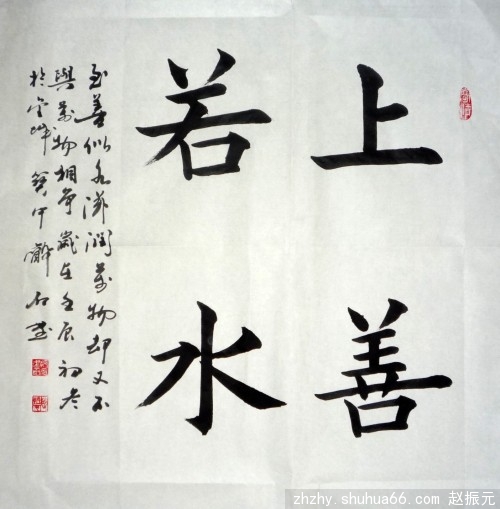 上善
若水
至善似水滋润万物却又不
与万物相争岁在壬辰初冬
於
石
zhzhy.shuhua66.com 赵振元